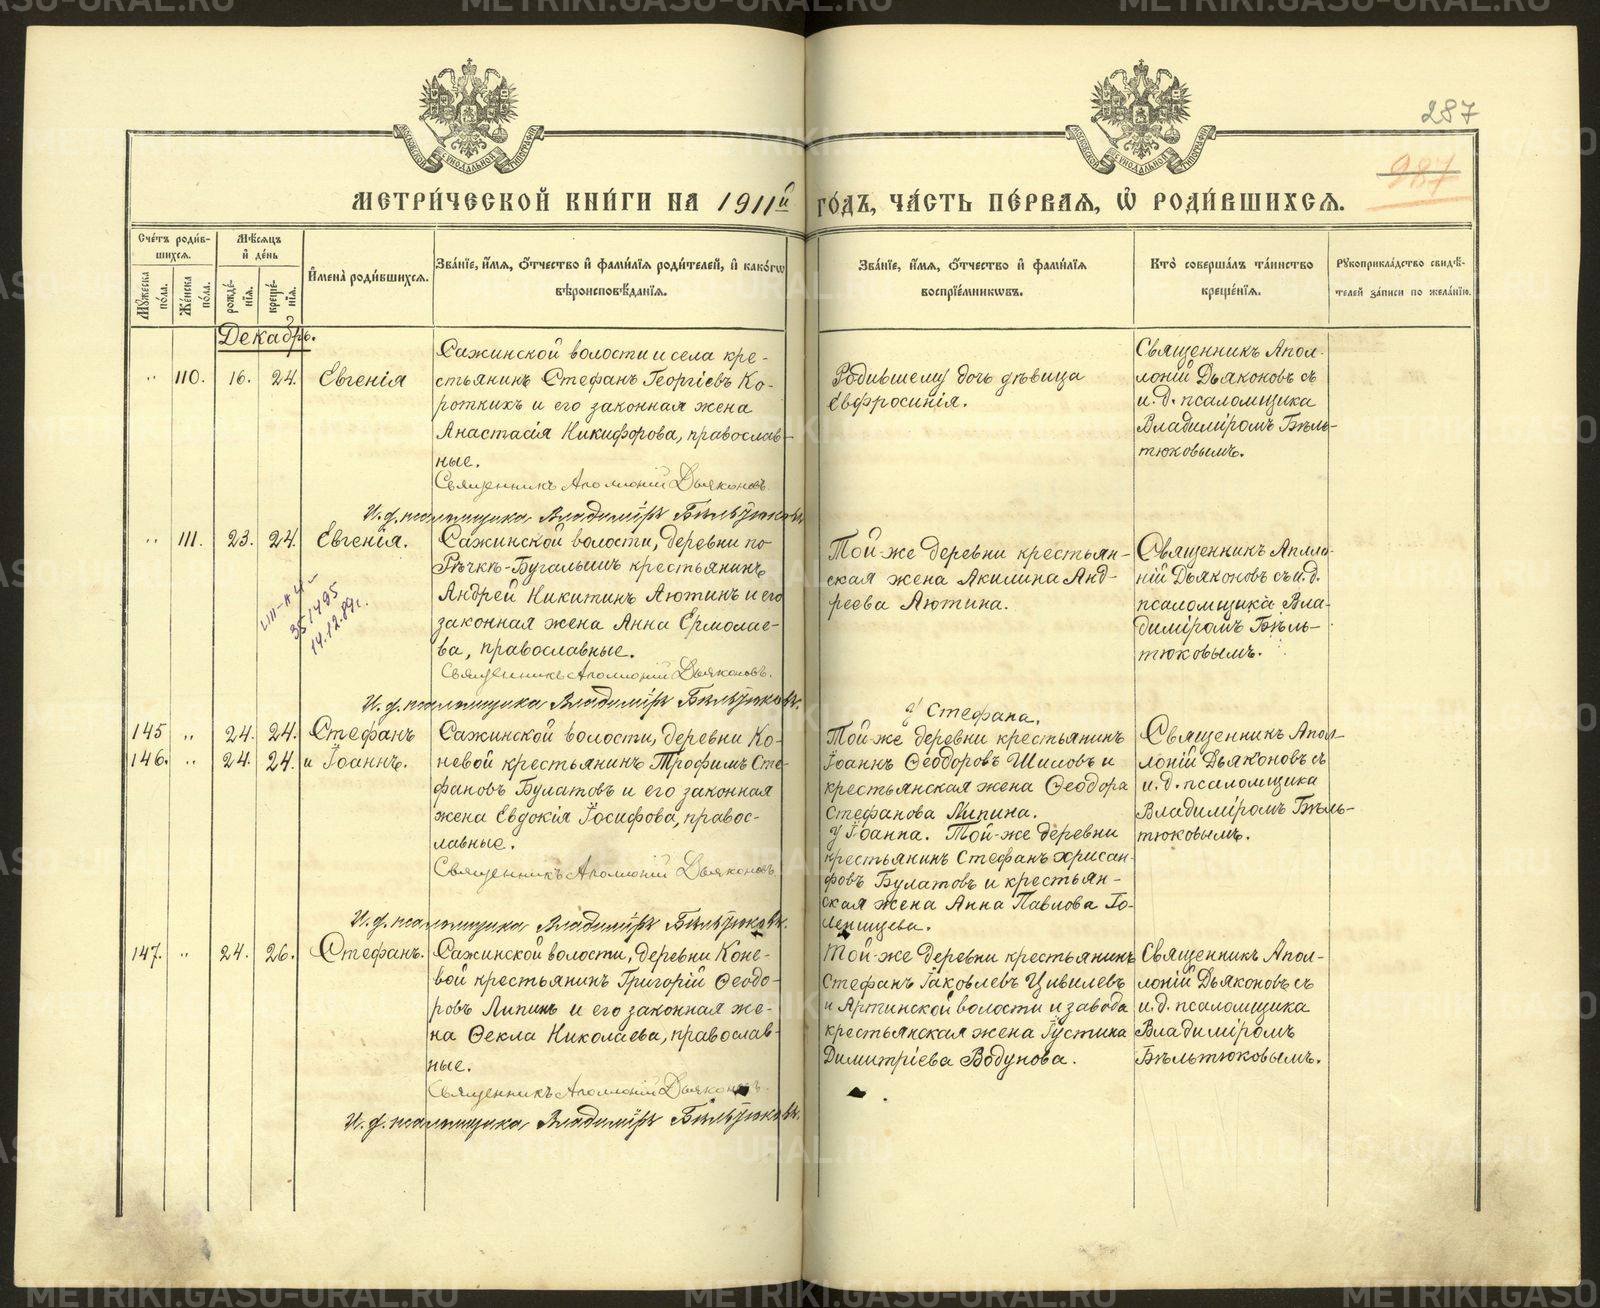 287
987
МЕТРИ́ЧЕСКОЙ КНИ́ГИ НА 1911й ГО́ДЪ, ЧА́СТЬ ПЕ́РВАЯ, Ѡ҆ РОДИ́ВШИХСЯ.
Сче́тъ роди́в-
шихся.
Мꙋ́жеска по́ла.
Же́нска по́ла.
Мѣ́сяцъ и҆ де́нь
рожде́-
нія.
креще́-
нія.
И҆мена̀ роди́вшихся.
Зва́ніе, и҆́мя, ѻ҆́тчество и҆ фами́лія роди́телей, и҆ како́гѡ
вѣроисповѣ́данія.
Зва́ніе, и҆́мя, ѻ҆́тчество и҆ фами́лія
воспріе́мникѡвъ.
Кто̀ соверша́лъ та́инство
креще́нія.
Рꙋкоприкла́дство свидѣ́-
телей за́писи по жела́нію.
Декабрь.
„ 110. 16. 24. Евгенія
Сажинской волости и села кре-
стьянинъ Стефанъ Георгіевъ Ко-
роткихъ и его законная жена
Анастасія Никифорова, православ-
ные.
Священникъ Аполлоній Дьяконовъ.
И.д. псаломщика Владиміръ Бѣльтюковъ.
Родившему дочь дѣвица
Евфросинія.
Священникъ Апол-
лоній Дьяконовъ съ
и.д. псаломщика
Владиміромъ Бѣль-
тюковымъ.
„ 111. 23. 24. Евгенія.
351495
14.12.89г.
Сажинской волости, деревни по
Рѣчкѣ-Бугалышъ крестьянинъ
Андрей Никитинъ Аютинъ и его
законная жена Анна Ермолае-
ва, православные.
Священникъ Аполлоній Дьяконовъ.
И.д. псаломщика Владиміръ Бѣльтюковъ.
Той-же деревни крестьян-
ская жена Акилина Анд-
реева Аютина.
Священникъ Аполло-
ній Дьяконовъ съ и.д.
псаломщика Вла-
диміромъ Бѣль-
тюковымъ.
145 „ 24. 24. Стефанъ
146. „ 24. 24. и Іоаннъ.
Сажинской волости, деревни Ко-
невой крестьянинъ Трофимъ Сте-
фановъ Булатовъ и его законная
жена Евдокія Іосифова, правос-
лавные.
Священникъ Аполлоній Дьяконовъ
И.д. псаломщика Владиміръ Бѣльтюковъ.
У Стефана.
Той-же деревни крестьянинъ
Іоаннъ Ѳеодоровъ Шиловъ и
крестьянская жена Ѳеодора
Стефанова Липина.
У Іоанна. Той-же деревни
крестьянинъ Стефанъ Хрисан-
фовъ Булатовъ и крестьян-
ская жена Анна Павлова Го-
ленищева.
Священникъ Апол-
лоній Дьяконовъ съ
и.д. псаломщика
Владиміромъ Бѣль-
тюковымъ.
147. „ 24. 26. Стефанъ.
Сажинской волости, деревни Коне-
вой крестьянинъ Григорій Ѳеодо-
ровъ Липинъ и его законная же-
на Ѳекла Николаева, православ-
ные.
Священникъ Аполлоній Дьяконовъ.
И.д. псаломщика Владиміръ Бѣльтюковъ.
Той-же деревни крестьянинъ
Стефанъ Іаковлевъ Цивилевъ
и Артинской волости и завода
крестьянская жена Іустина
Димитріева Водунова.
Священникъ Апол-
лоній Дьяконовъ съ
и.д. псаломщика
Владиміромъ
Бѣльтюковымъ.
METRIKI.GASO-URAL.RU